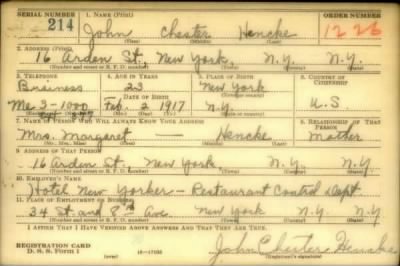 SERIAL NUMBER 1. NAME (Print) ORDER NUMBER
214 John Chester Hencke 1226
(First) (Middle) (Last)
2. ADDRESS (Print)
16 Arden St., New York, N.Y. N.Y.
(Number and street or R. F. D. number) (Town) (County) (State)
3. TELEPHONE 4. AGE IN YEARS 5. PLACE OF BIRTH 6. COUNTRY OF CITIZENSHIP
Business 23 New York
Me 3-1000 Feb. 2 1917 N.Y. U.S
7. NAME OF PERSON WHO WILL ALWAYS KNOW YOUR ADDRESS 8. RELATIONSHIP OF THAT PERSON
Mrs. Margaret — Hencke Mother
(Mr., Mrs., Miss) (First) (Middle) (Last)
9. ADDRESS OF THAT PERSON
16 Arden St., New York N.Y. N.Y.
(Number and street or R. F. D. number) (Town) (County) (State)
10. EMPLOYER'S NAME
Hotel New Yorker - Restaurant Control Dept
11. PLACE OF EMPLOYMENT OR BUSINESS
34 St. and 8th Ave. New York N.Y. N.Y
(Number and street or R. F. D. number) (Town) (County) (State)
I AFFIRM THAT I HAVE VERIFIED ABOVE ANSWERS AND THAT THEY ARE TRUE.
REGISTRATION CARD John Chester Hencke
D. S. S. Form 1 (over) 16—17105 (Registrant's signature)